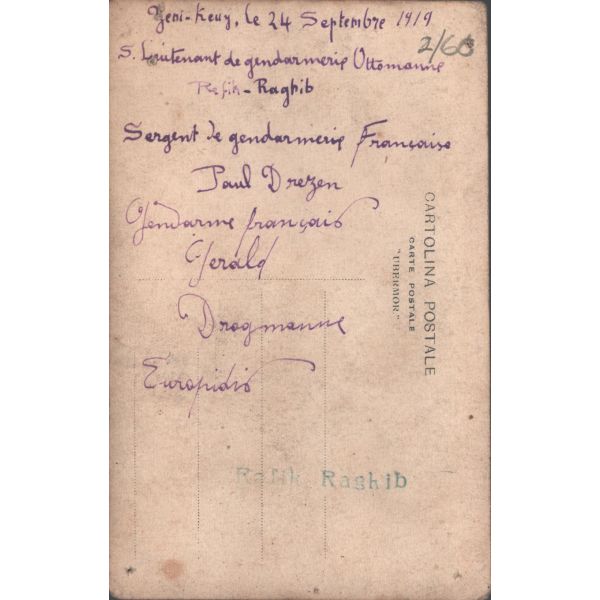 Yeni-Keuy, le 24 Septembre 1919
2/60
S. Lieutenant de gendarmerie Ottomanne
Refik-Raghib
Sergent de gendarmerie Française
Paul Drezen
Gendarme français
Gerald
Drogmanne
Euripidis
CARTOLINA POSTALE
CARTE POSTALE
"UBERMOR."
Refik Raghib